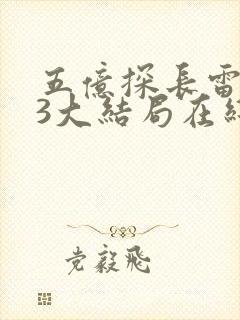 五億探長雷
3大結局在線
党毅飛